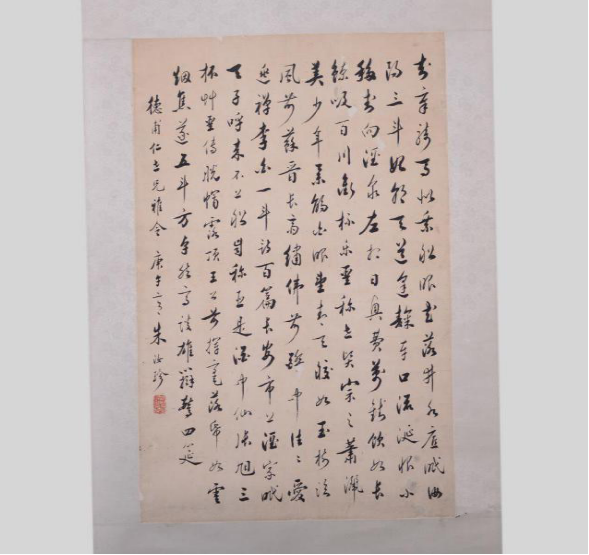 知章騎馬似乘船眼花落井水底眠汝
陽三斗始朝天道逢麴車口流涎恨不
移封向酒泉左相日興費萬錢飲如長
鯨吸百川銜杯樂聖稱世賢宗之蕭灑
美少年舉觴白眼望青天皎如玉樹臨
風前蘇晉長齋繡佛前醉中往々愛
逃禪李白一斗詩百篇長安市上酒家眠
天子呼來不上船自稱臣是酒中仙張旭三
杯艸聖傳脫帽露頂王公前揮毫落紙如雲
烟焦遂五斗方卓然高談雄辯驚四筵
德甫仁世兄雅令 庚午夏 朱汝珍